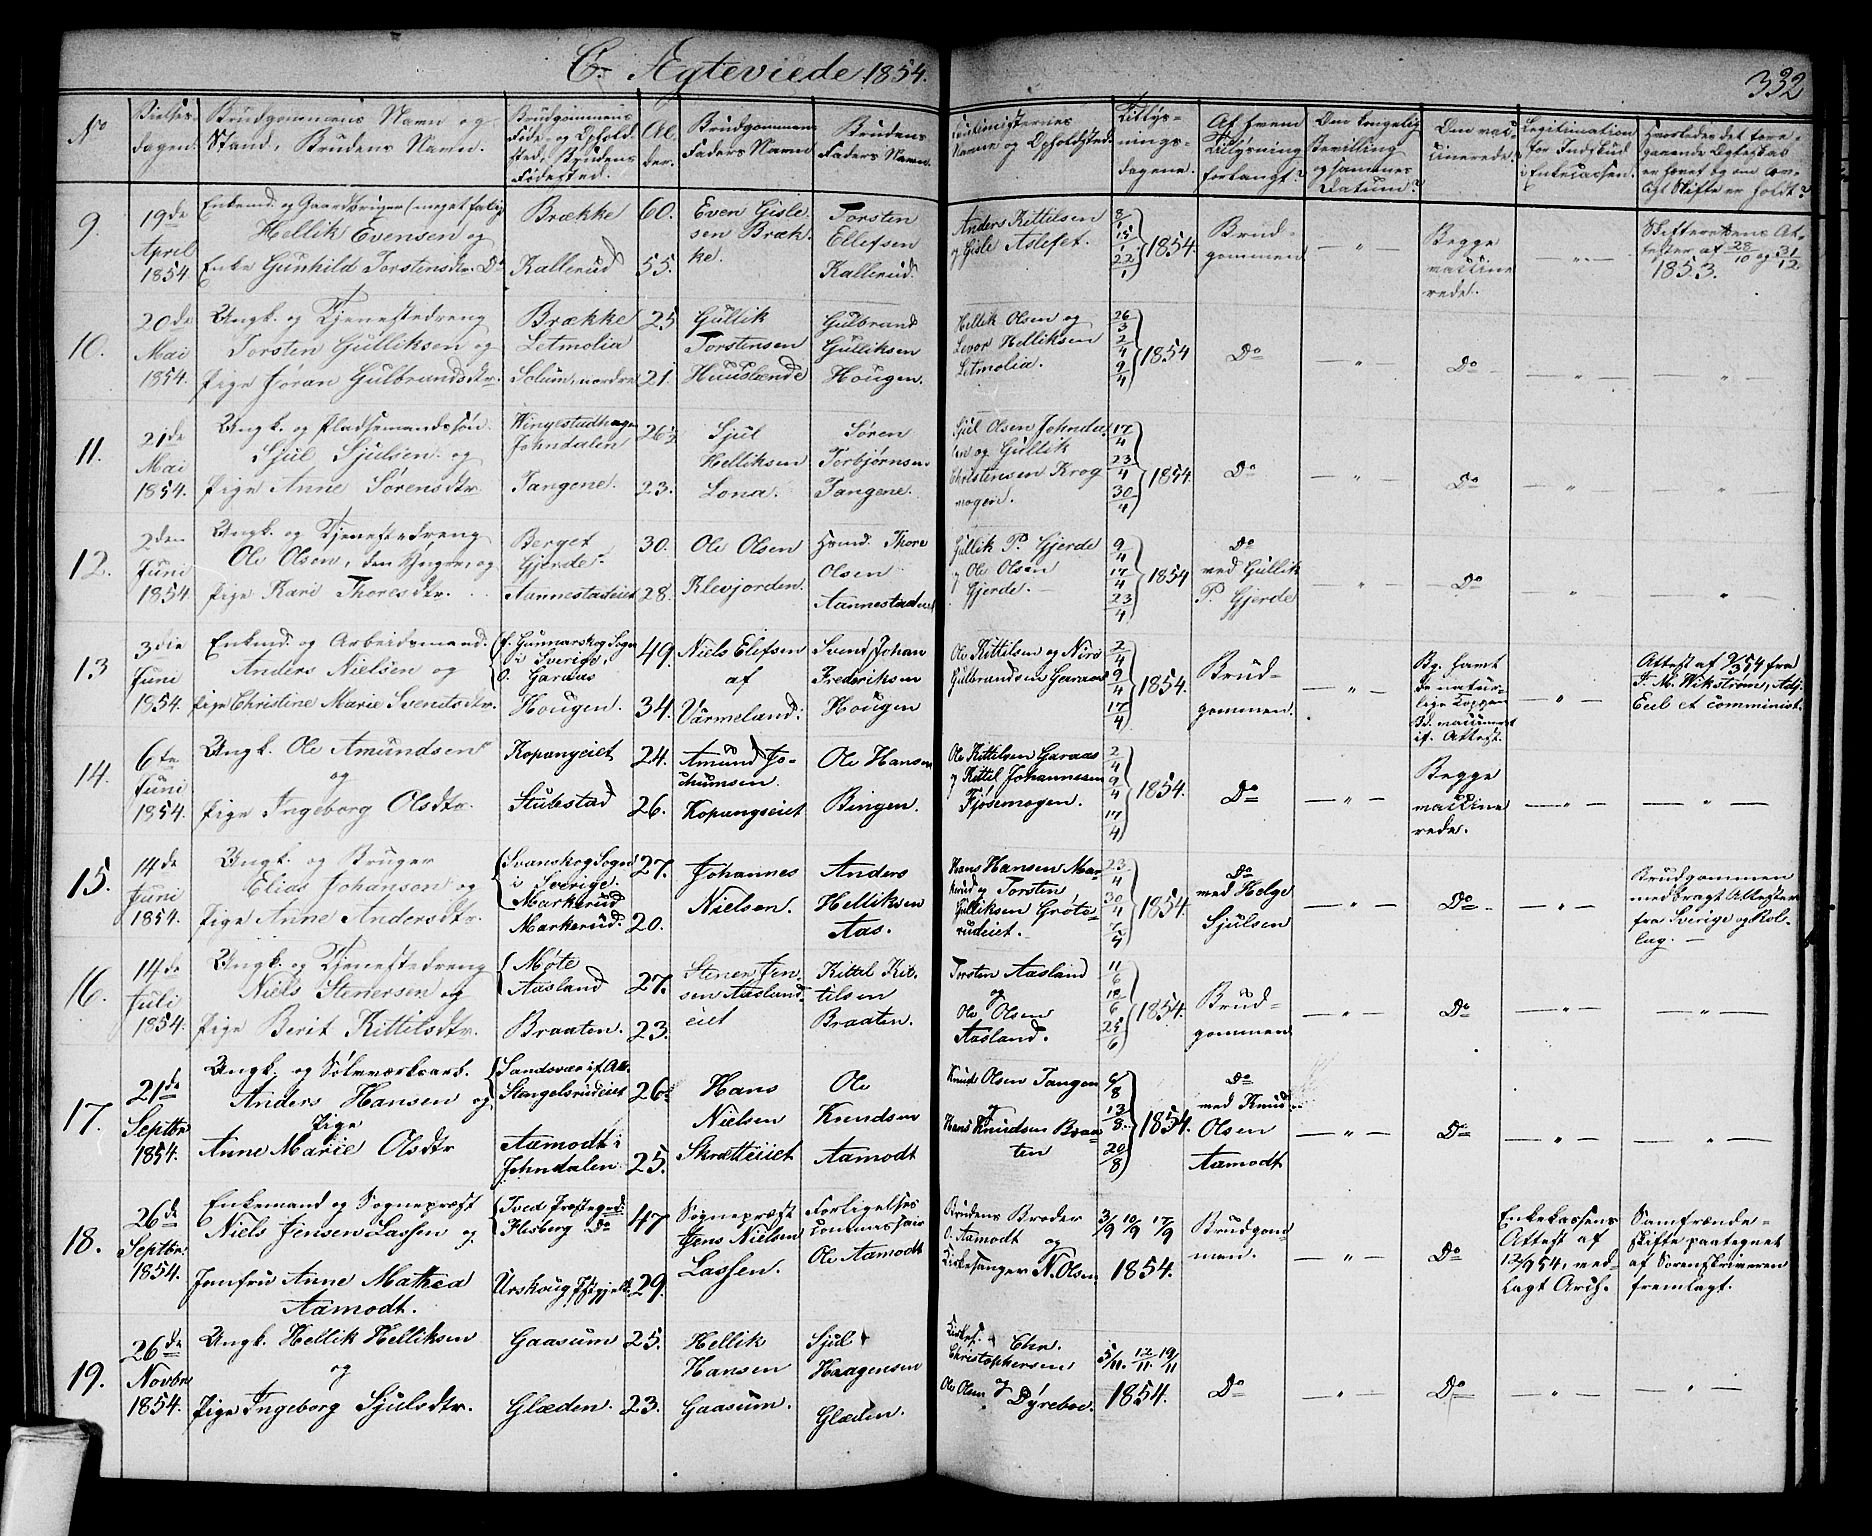 C. Ægteviede 1854.
332
No
Vielses-
dagen.
Brudgommens Navn og
Stand, Brudens Navn.
Brudgommens
Føde- og Ophold-
sted, Brudens
Fødested.
Al-
der.
Brudgommens
Faders Navn
Brudens
Faders Navn.
Navne og Opholdsted.
Lysnings-
dagene.
Af hvem
Lysning
forlangt?
Den kongelig
Bevilling
og sammes
Datum?
Om vac-
cinerede?
Legitimation
for Indskud
i Enkecassen.
Hvorledes det fore-
gaaende Ægteskab
er hævet og om lov-
ligt Skifte er holdt?
9.
19de
April
1854
Enkemd. og Gaardbruger (meget fatig)
Hellik Evensen og
Enke Gunhild Torstensdtr. Do
Brække
Kallerud
60.
55.
Even Gisle-
sen Bræk-
ke.
Torsten
Ellefsen
Kallerud.
Anders Kittilsen
og Gisle Aslefet.
8/1 15/1 22/1 1854.
Brud-
gommen
— " —
Begge
vaccine
rede.
— " —
Skifterettens At-
tester af 28/10 og 31/12
1853.
10.
20de
Mai
1854.
Ungk. og Tjenestedreng
Torsten Gulliksen og
Pige Jøran Gulbrandsdtr.
Brække
Letmolia
Solum, nordre
25
21.
Gullik
Torstensen
Huuslænde
Gulbrand
Gulliksen
Hougen.
Hellik Olsen og
Levor Helliksen
Letmolia.
26/3 2/4 9/4 1854
Do
— " —
Do
— " —
— " —
11.
21de
Mai
1854.
Ungk. og Pladsemandssøn.
Sjul Sjulsen og
Pige Anne Sørensdtr.
Wingestadhagen
Johndalen
Tangene.
26½
23.
Sjul
Helliksen
Lona.
Søren
Torbjørnsen
Tangene.
Sjul Olsen Johnda-
len og Gullik
Christensen Krog-
mogen.
17/4 23/4 30/4 1854
Do
— " —
Do
— " —
— " —
12.
2den
Juni
1854
Ungk. og Tjenestedreng
Ole Olsen, den Yngre, og
Pige Kari Thoresdtr.
Berget
Gjerde.
Aannestadeiet
30.
28.
Ole Olsen
Klevjorden.
Thore
Olsen
Aannestadeiet
Gullik P. Gjerde
og Ole Olsen
Gjerde.
9/4 17/4 23/4 1854
Do
ved Gullik
P. Gjerde
— " —
Do
— " —
— " —
13
3die
Juni
1854.
Enkemd. og Arbeidsmand.
Anders Nielsen og
Pige Christine Marie Svendsdtr.
f. Gunnarskog Sogn
i Sverige,
o. Garaas
Hougen.
49.
34.
Niels Elifsen
af
Värmeland.
Svend Johan
Frederiksen
Hougen
Ole Kittilsen og
Gulbrandsen Garaas
2/4 9/4 17/4 1854.
Brud-
gommen.
— " —
Bg. havt
de natur-
lige Kopper
Bd. vaccineret
if. Attest.
— " —
Attest af 9/3 54 fra
F. M. Wikström, Adj.
Eccl et comminist.
14.
6te
Juni
1854.
Ungk. Ole Amundsen
og
Pige Ingeborg Olsdtr.
Kopangeiet
Stulestad
24.
26.
Amund Jo-
chumsen.
Kopangseiet
Ole Hansen
Bingen.
Ole Kittilsen Garaas
og Kittil Johannesen
Fjøsemogen.
2/4 9/4 17/4 1854.
Do
— " —
Begge
vaccine
rede.
— " —
— " —
15.
14de
Juni
1854.
Ungk. og Bruger
Elias Johanson og
Pige Anne Andersdtr.
Svanskog Sogn
i Sverige.
Markerud
Markerud.
27.
20.
Johannes
Nielsen.
Anders
Helliksen
Aas.
Hans Hansen Mar-
kerud og Torsten
Gulliksen Grøte-
rudeiet.
23/4 30/4 1854.
Do
med Helge
Sjulsen
— " —
Do
— " —
Brudgommen
medbragt Attester
fra Sverige og Rol-
lag.
16.
14de
Juli
1854.
Ungk. og Tjenestedreng
Niels Stenersen og
Pige Berit Kittilsdtr.
Møte
Aasland
Braaten.
27.
23.
Stener Jen-
sen Aasland-
eiet
Kittil Kit-
tilsen
Braaten.
Torsten Aasland
og
Ole Olsen
Aasland.
11/6 18/6 25/6 1854.
Brud-
gommen
— " —
Do
— " —
— " —
17.
21de
Septbr
1854.
Ungk. og Sølvværksarb.
Anders Hansen og
Pige
Anne Marie Olsdtr
Sandsvær if. Att.
Stengelsrudeiet
Aamodt i
Johndalen
26.
25.
Hans
Nielsen
Skrætteiiet
Ole
Knudsen
Aamodt
Knud Olsen Tangen
og
Hans Knudsen Braa-
ten
6/8 13/8 20/8 1854.
Do
ved Knud
Olsen
Aamodt
— " —
Do
— " —
— " —
18.
26de
Septbr.
1854.
Enkemand og Sognepræst
Niels Jensen Lassen og
Jomfru Anne Mathea
Aamodt.
Tved Præstegjd.
Flesberg Do
Urskoug Pstgjeld.
47
29.
Sognepræst
Jens Nielsen
Lassen.
Forligelses
commissair
Ole Aamodt
Brudens Broder
O. Aamodt og
Kirkesanger N. Olsen
3/9 10/9 17/9
1854.
Brudgom-
men.
— " —
Do
Enkekassens
Attest af
12/9 54, ved-
lagt Arch.
Samfrænde-
skifte paategnet
af Sorenskriveren
fremlagt.
19.
26de
Novbr.
1854.
Ungk. Hellik Helliksen
og
Pige Ingeborg Sjulsdtr.
Gaasum
Glæden.
25.
23.
Hellik
Hansen
Gaasum.
Sjul
Haagensen
Glæden.
Kirkes. Chr.
Christophersen,
Ole Olsen og Dyreboe.
5/11. 12/11. 19/11
1854.
Do
— " —
Do
— " —
— " —